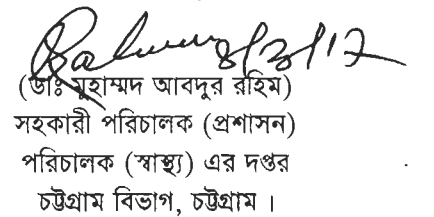 (ডাঃ মুহাম্মদ আবদুর রহিম)
সহকারী পরিচালক (প্রশাসন)
পরিচালক (স্বাস্থ্য) এর দপ্তর
চট্টগ্রাম বিভাগ, চট্টগ্রাম ।